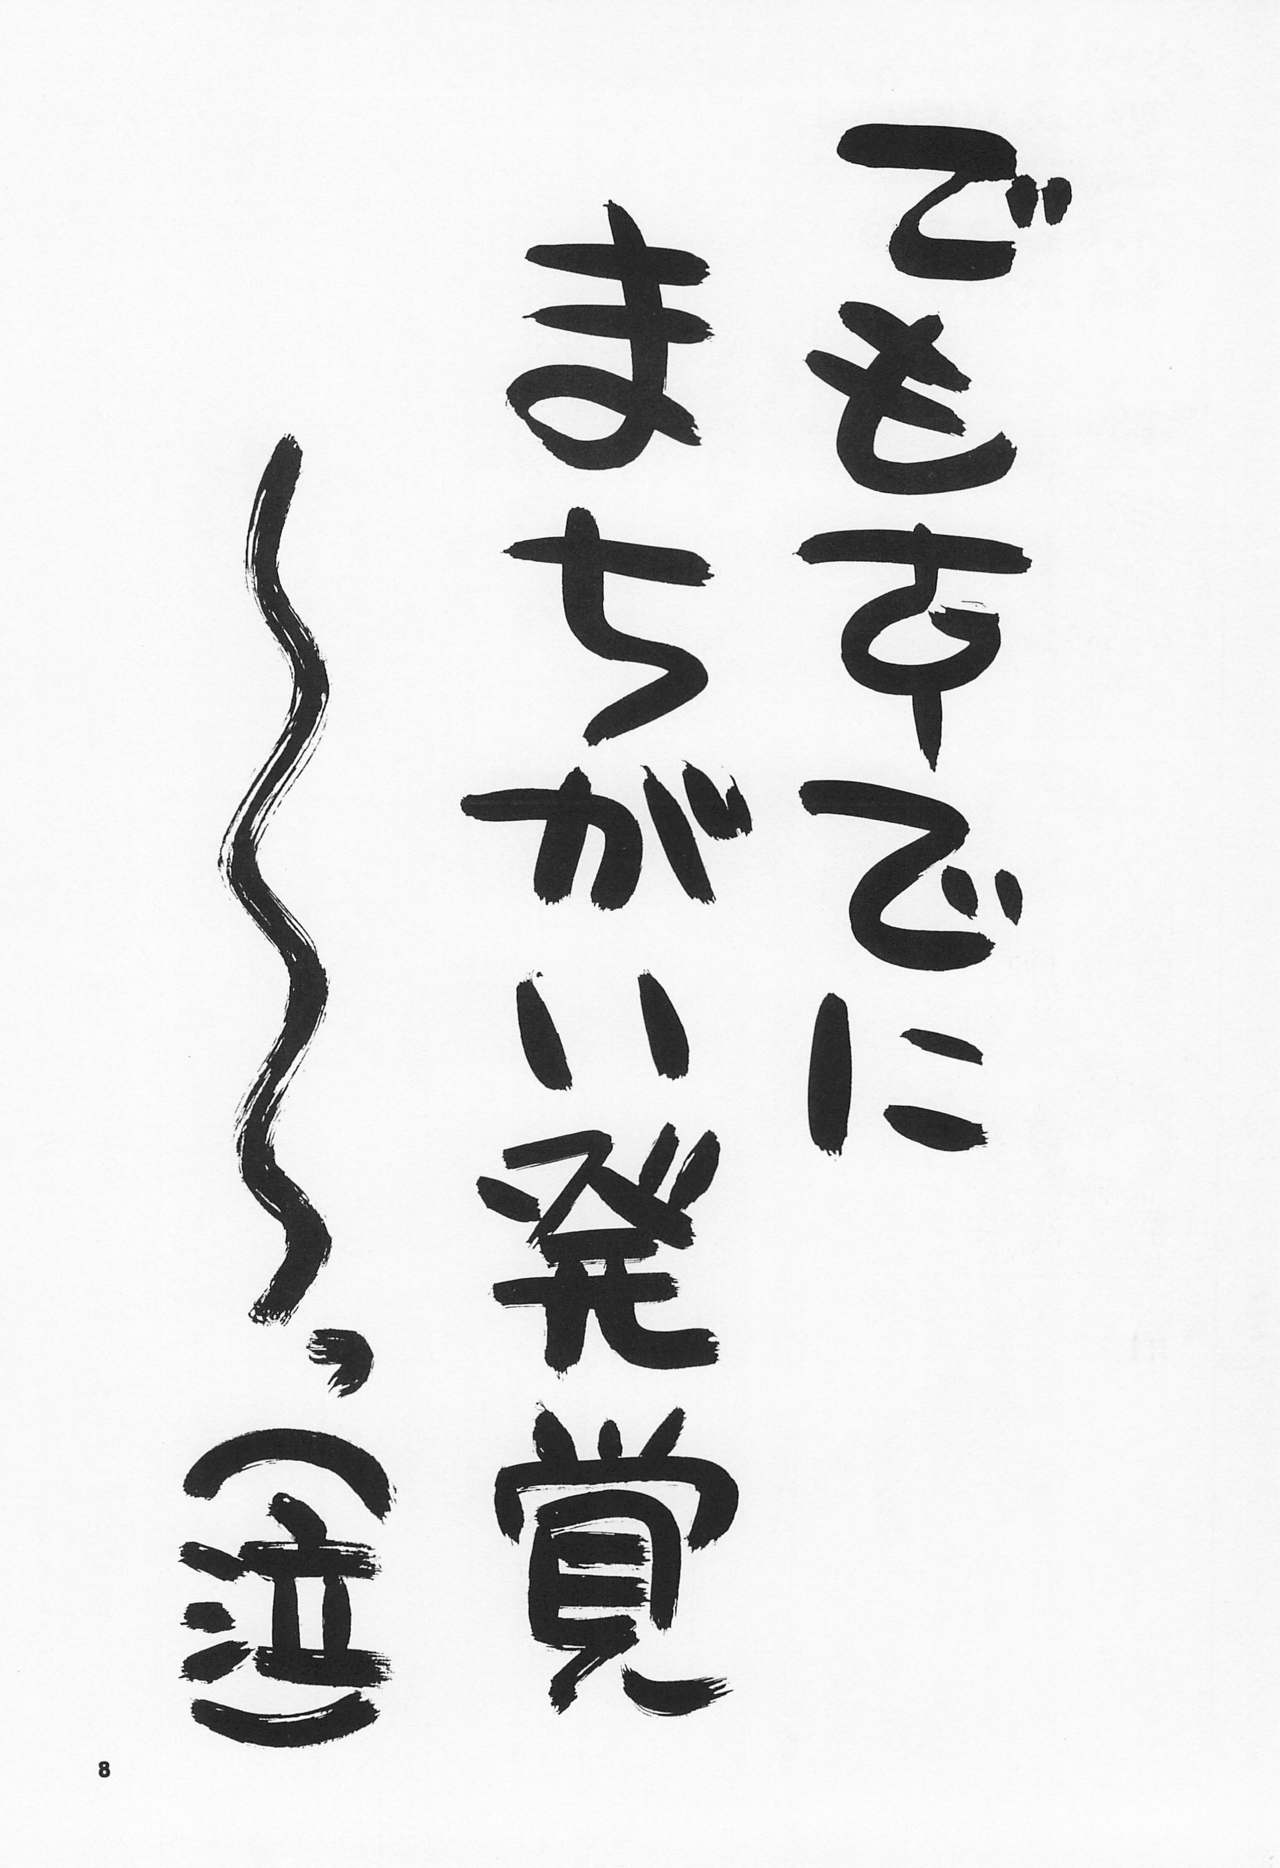 でもすでに
まちがい発覚
〜〜、(泣)
8